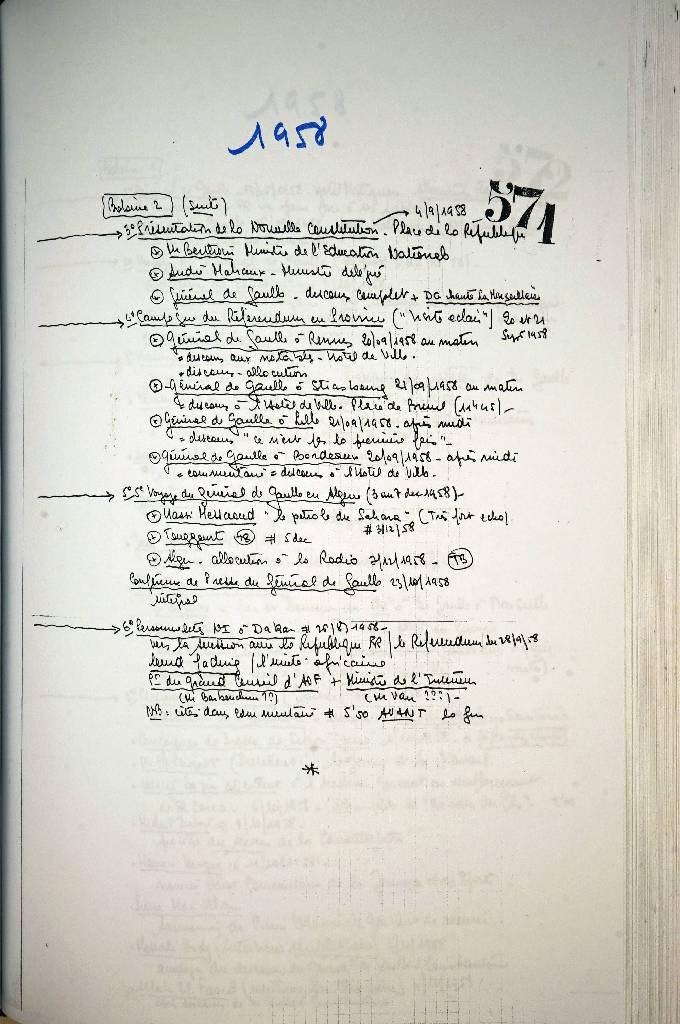 1958
571
Bobine 2 (suite)
4/9/1958
3° Présentation de la Nouvelle Constitution - Place de la République
M Berthoin Ministre de l'Education National
André Malraux - Ministre délégué
Général de Gaulle - discours complet + DG chante La Marseillaise
4° Campagne du Référendum en Province ("Visite eclair") 20 et 21 Sept 1958
Général de Gaulle à Rennes 20/09/1958 au matin
= discours aux notables - Hotel de Ville.
= discours - allocution
Général de Gaulle à Strasbourg 21/09/1958 au matin
= discours à l'Hotel de Ville. Place de (11h45)-
Général de Gaulle à Lille 21/09/1958 - après midi
= discours "ce n'est pas la première fois"-
Général de Gaulle à Bordeaux 20/09/1958 - après midi
= commentaire = discours à l'Hotel de Ville.
5° 5° Voyage du Général de Gaulle en Algérie (3 au 7 dec 1958)-
Hassi Messaoud "le pétrole du Sahara" (Très fort echo)
# 3/12/58
Touggourt TB # 5 dec
Alger - allocution à la Radio 3/12/1958 - TB
Conférence de Presse du Général de Gaulle 23/10/1958
intégral
6° NI à Dakar # 1958-
la République / le Referendum du 28/9/58
fading / l'unité africaine
PI du Grand Conseil d'AOF + Ministre de l'Intérieur
(M ??) (M Van ???)-
NB: cités dans commentaire # 5'50 AVANT la fin
*